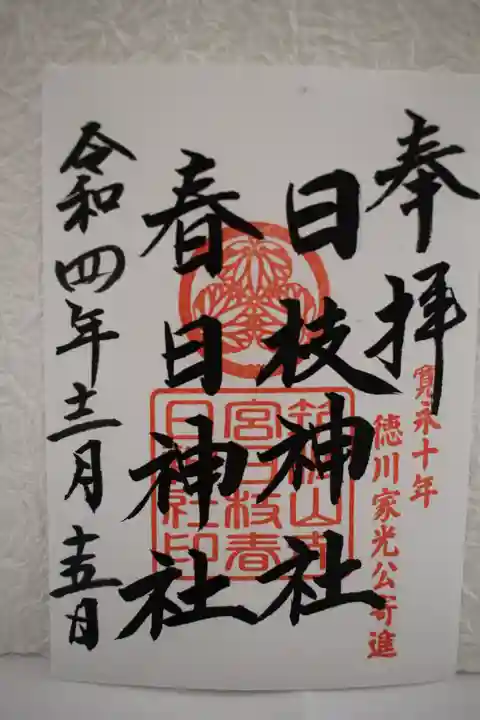 奉拝
寛永十年
徳川家光公寄進
日枝神社
春日神社
令和四年十二月十五日
宮日枝春
日神社印